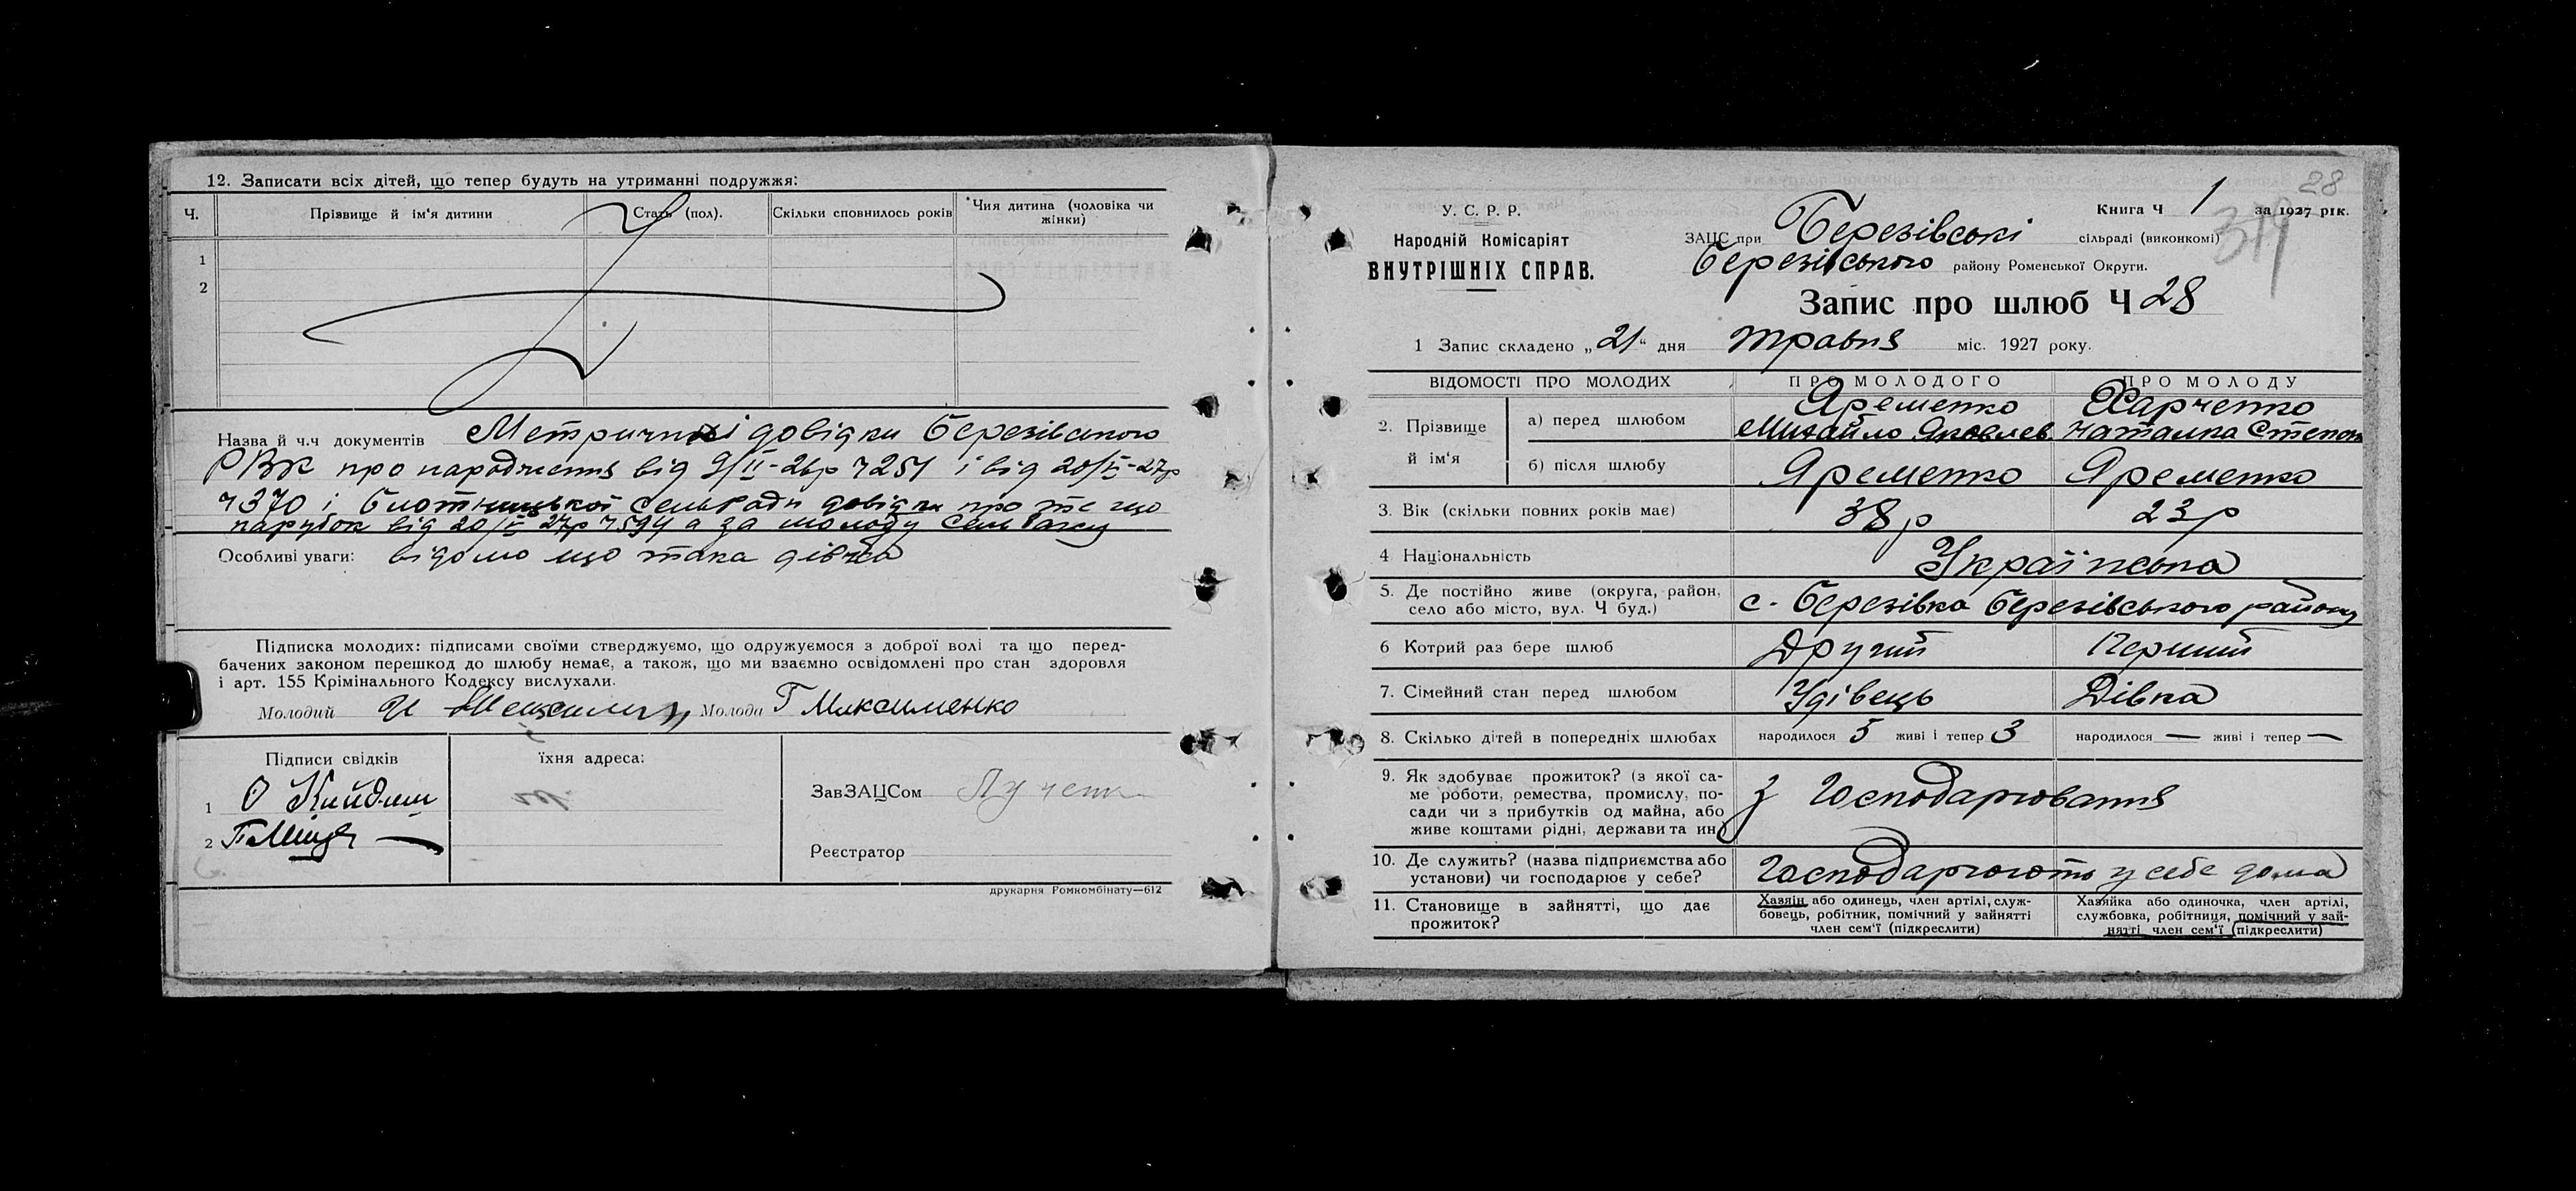 12. Записати всіх дітей, що тепер будуть на утриманні подружжя:
Ч. Прізвище й ім'я дитини Стать (пол). Скільки сповнилось років Чия дитина (чоловіка чи жінки)
1
2
Назва й ч.ч документів Метричні довідки Березівського
РВК про народження від 9/II-26р Ч251 і від 20/V-27р
Ч370 і Блотницької сельради довідки про те що
парубок від 20/V 27р Ч594 а за молоду
Особливі уваги: відомо що така дівка
Підписка молодих: підписами своїми стверджуємо, що одружуємося з доброї волі та що перед-
бачених законом перешкод до шлюбу немає, а також, що ми взаємно освідомлені про стан здоровля
і арт. 155 Крімінального Кодексу вислухали.
Молодий И Молода Г Максименко
Підписи свідків їхня адреса:
1 О
2
ЗавЗАЦСом
Реєстратор
друкарня Ромкомбінату—612
28
У. С. Р. Р.
Народній Комісаріят
ВНУТРІШНІХ СПРАВ.
Книга Ч 1 за 1927 рік.
379
ЗАЦС при Березівські сільраді (виконкомі)
Березівського району Роменської Округи.
Запис про шлюб Ч 28
1 Запис складено „21“ дня травня міс. 1927 року.
ВІДОМОСТІ ПРО МОЛОДИХ ПРО МОЛОДОГО ПРО МОЛОДУ
2. Прізвище й ім'я
а) перед шлюбом Яременко Михайло Яковлев Харченко Наталка Степан
б) після шлюбу Яременко Яременко
3. Вік (скільки повних років має) 38р 23р
4 Національність Українська
5. Де постійно живе (округа, район,
село або місто, вул. Ч буд.) с. Березівка Березівського району
6 Котрий раз бере шлюб Другий Перший
7. Сімейний стан перед шлюбом Удівець Дівка
8. Скілько дітей в попередніх шлюбах народилося 5 живі і тепер 3 народилося — живі і тепер —
9. Як здобуває прожиток? (з якої са-
ме роботи, ремества, промислу, по-
сади чи з прибутків од майна, або
живе коштами рідні, держави та ин)
з Господарювання
10. Де служить? (назва підприємства або
установи) чи господарює у себе? Господарюють у себе дома
11. Становище в зайнятті, що дає
прожиток?
Хазяїн або одинець, член артілі, служ-
бовець, робітник, помічний у зайнятті
член сем'ї (підкреслити)
Хазяйка або одиночка, член артілі,
службовка, робітниця, помічний у зай-
нятті член сем'ї (підкреслити)